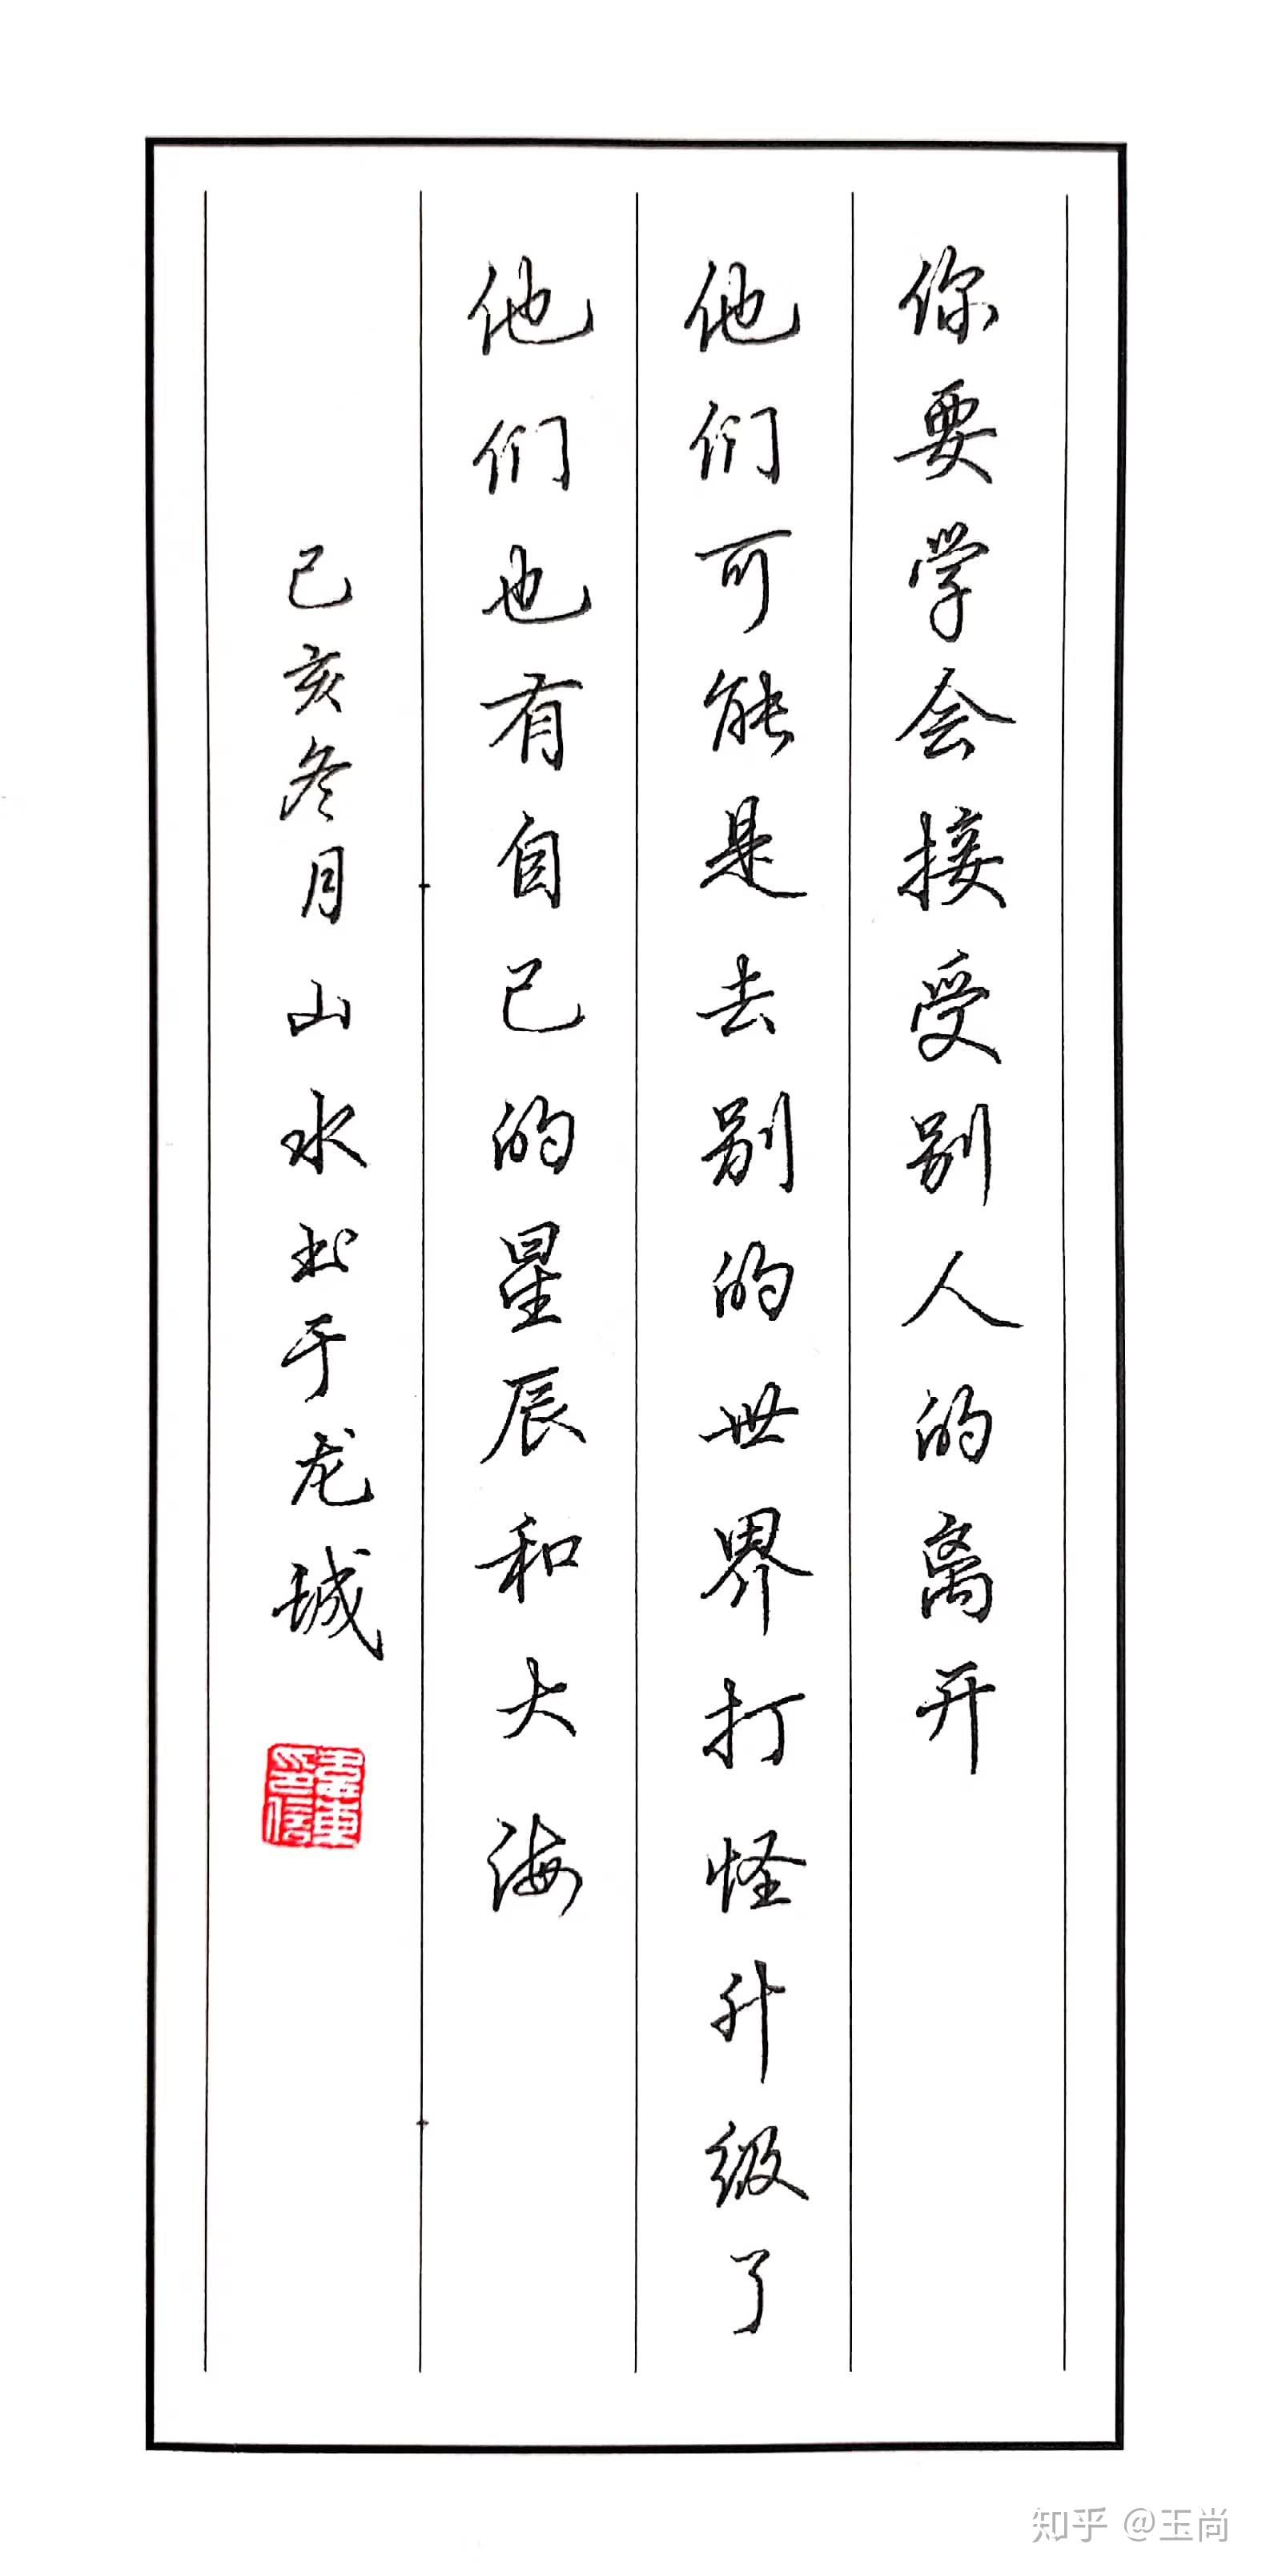 你要学会接受别人的离开
他们可能是去别的世界打怪升级了
他们也有自己的星辰和大海
己亥冬月山水书于龙城
知乎 @玉尚